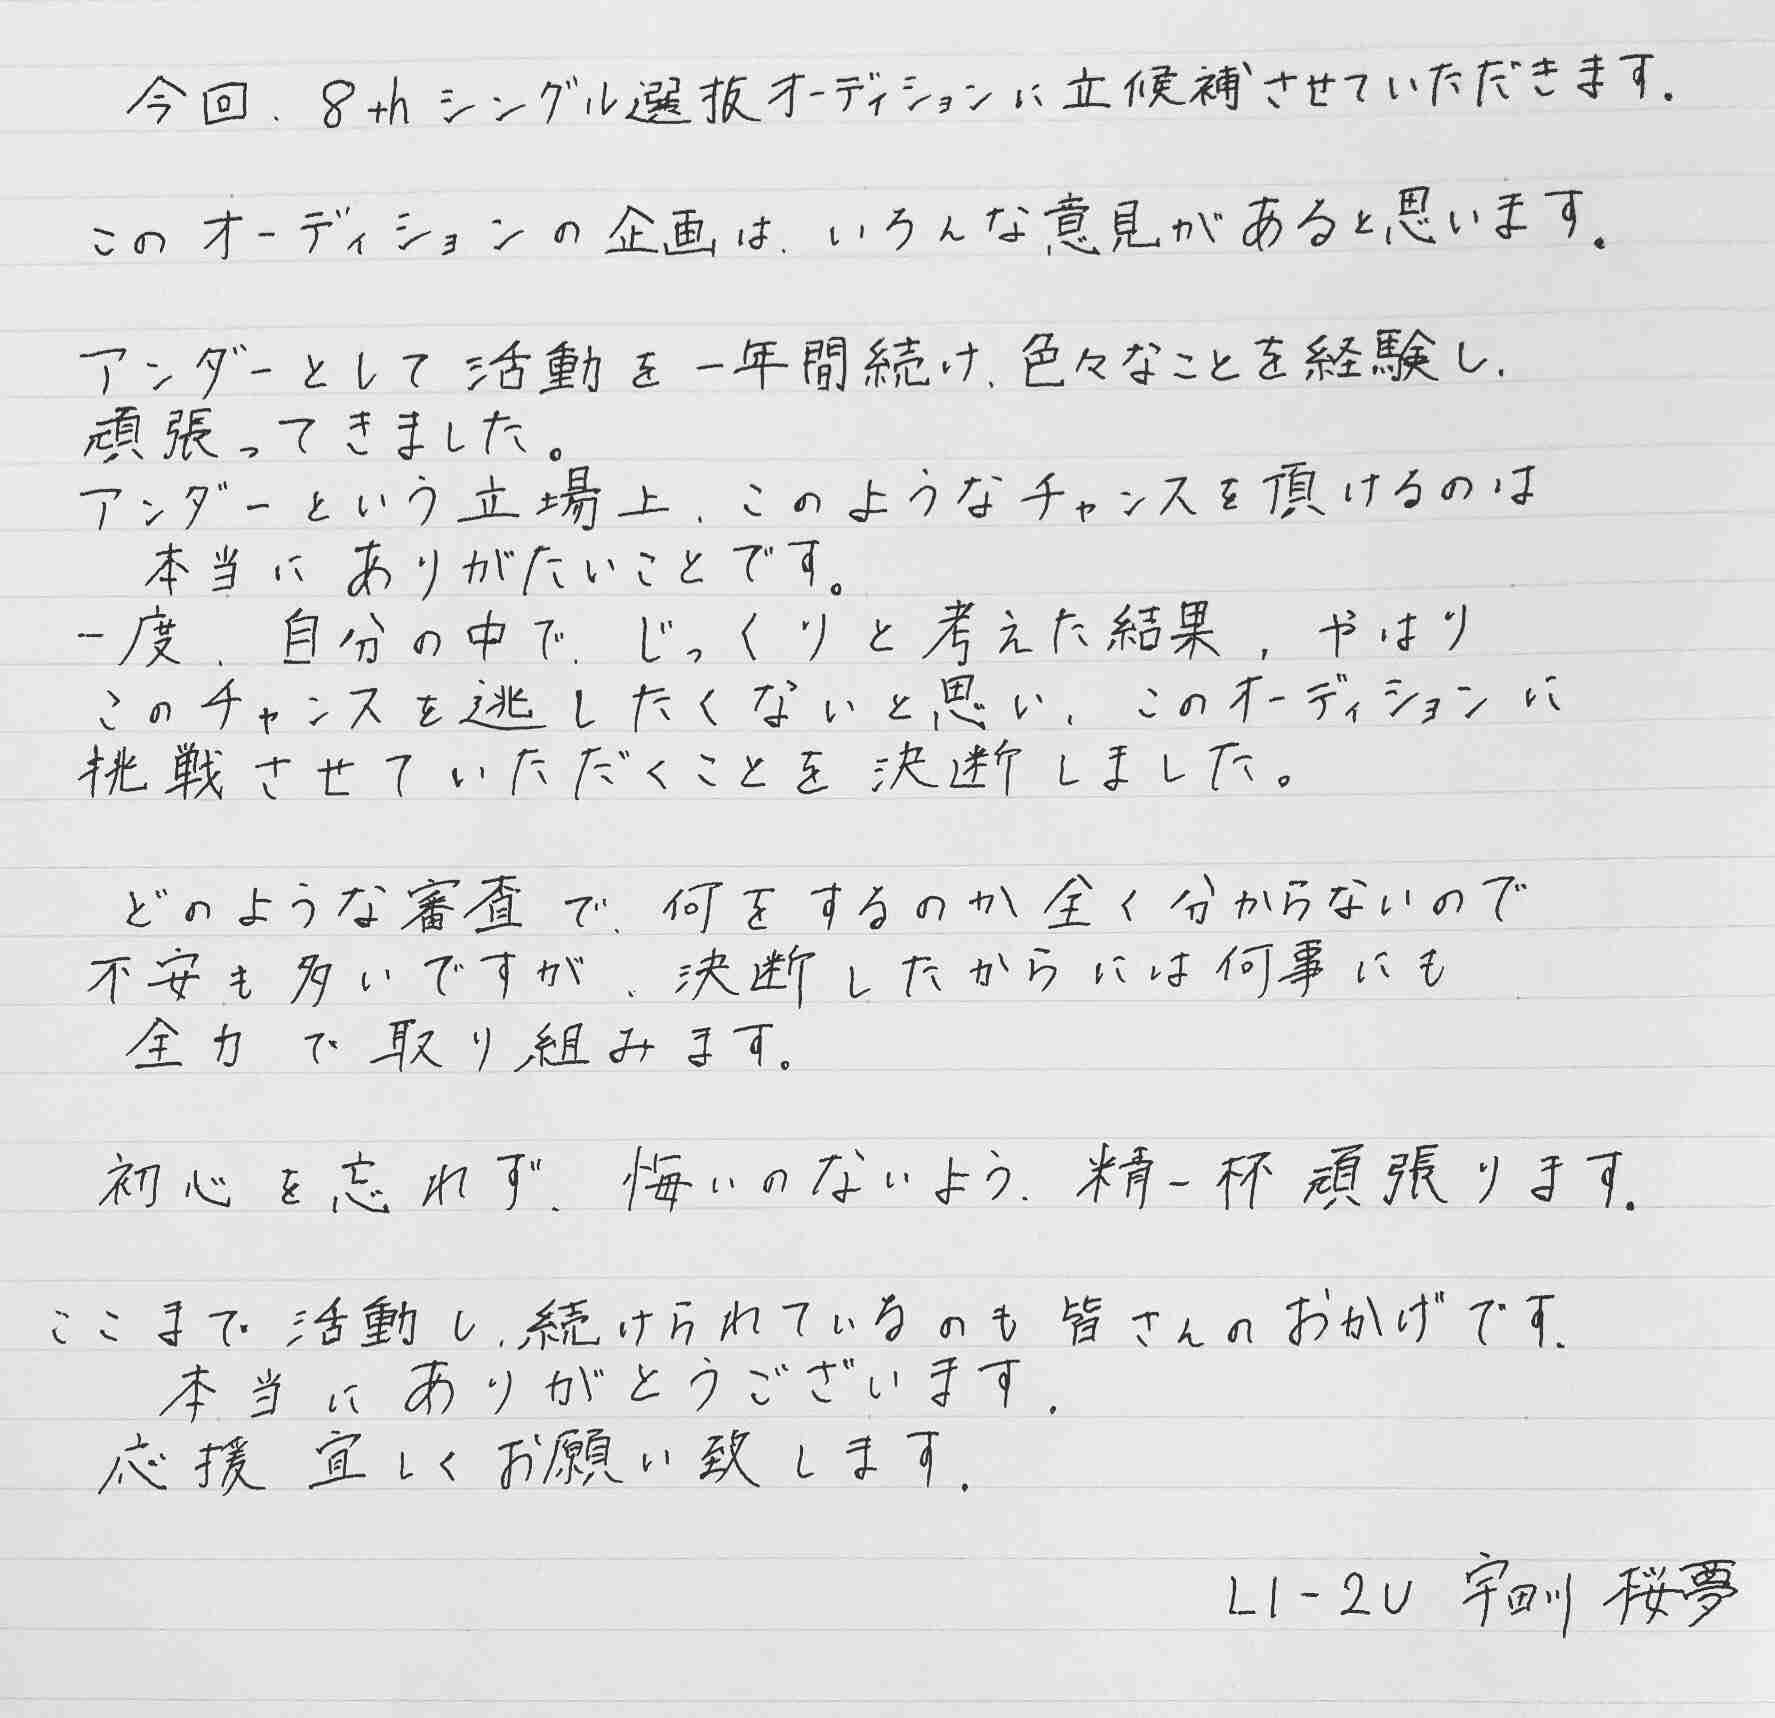 今回、8thシングル選抜オーディションに立候補させていただきます。
このオーディションの企画は、いろんな意見があると思います。
アンダーとして活動を一年間続け、色々なことを経験し、
頑張ってきました。
アンダーという立場上、このようなチャンスを頂けるのは
本当にありがたいことです。
一度、自分の中で、じっくりと考えた結果、やはり
このチャンスを逃したくないと思い、このオーディションに
挑戦させていただくことを決断しました。
どのような審査で、何をするのか全く分からないので
不安も多いですが、決断したからには何事にも
全力で取り組みます。
初心を忘れず、悔いのないよう、精一杯頑張ります。
ここまで活動し、続けられているのも皆さんのおかげです。
本当にありがとうございます。
応援宜しくお願い致します。
LI-2U 宇田川 桜夢